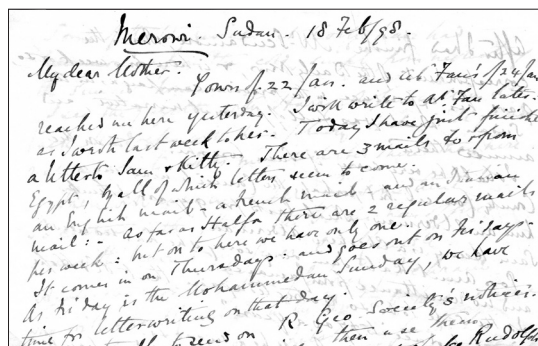 Merowi. Sudan. 18 Feb/98.
My dear Mother.
Yours of 22 Jan. and at Fan's of 24 Jan
reached me here yesterday. I wont write to At Fan later.
as I wrote last week to her. Today I have just finished
a letter to Sam & Kitty. There are 3 mails to & from
Egypt, by all of which letters seem to come.
an English mail - a French mail - and an
mail: - as far as Halfa there are 2 regular mails
per week: but on to here we have only one.
It comes in on Thursdays. and goes out on Fridays.
As Friday is the Mohammedan Sunday, we have
time for letterwriting on that day.
send on R Geo Society's notices.
then use them
Rudolph